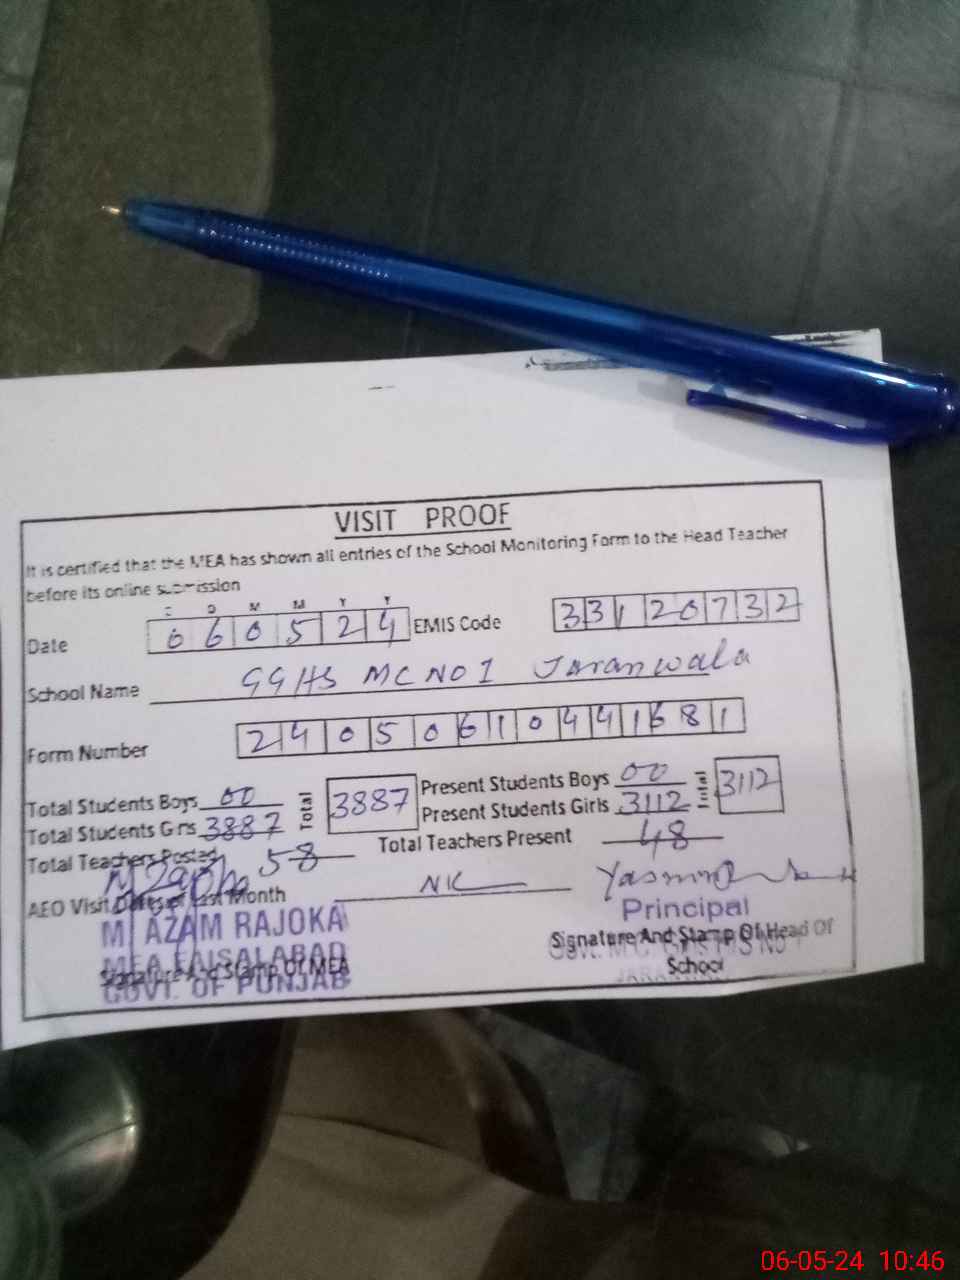 VISIT PROOF
It is certified that the MEA has shown all entries of the School Monitoring Form to the Head Teacher
before its online submission
D D M M Y Y
Date 060524 EMIS Code 33120732
School Name GGHS MC NO 1 Jaranwala
Form Number 24050610441681
Total Students Boys 00 Total 3887 Present Students Boys 00 Total 3112
Total Students Girls 3887 Present Students Girls 3112
Total Teachers Posted 58 Total Teachers Present 48
AEO Visit Dates of Last Month NIL
M AZAM RAJOKA
MEA FAISALABAD
GOVT. OF PUNJAB
Signature And Stamp Of MEA
Principal
Signature And Stamp Of Head Of
School
06-05-24 10:46